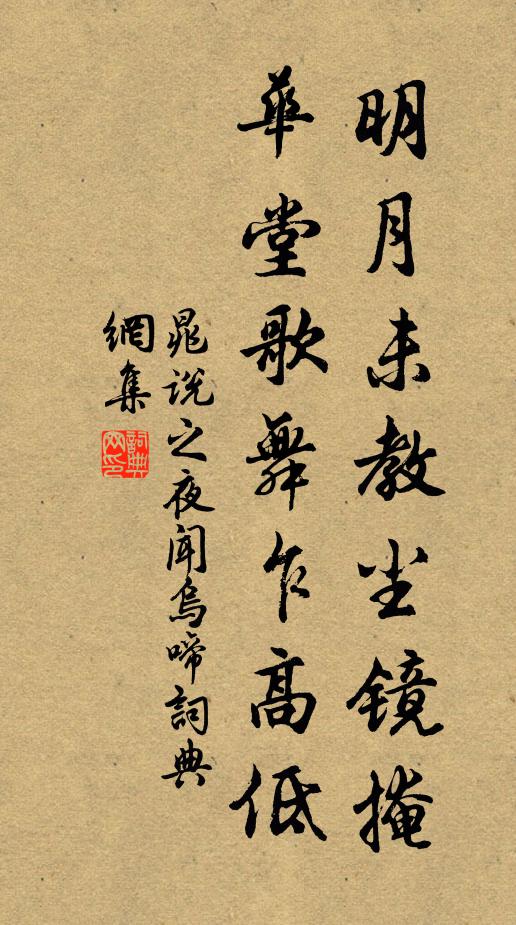 明月未教尘镜掩
華堂歌舞乍高低
晁说之夜闻烏啼詞典
網集
詞典
网印